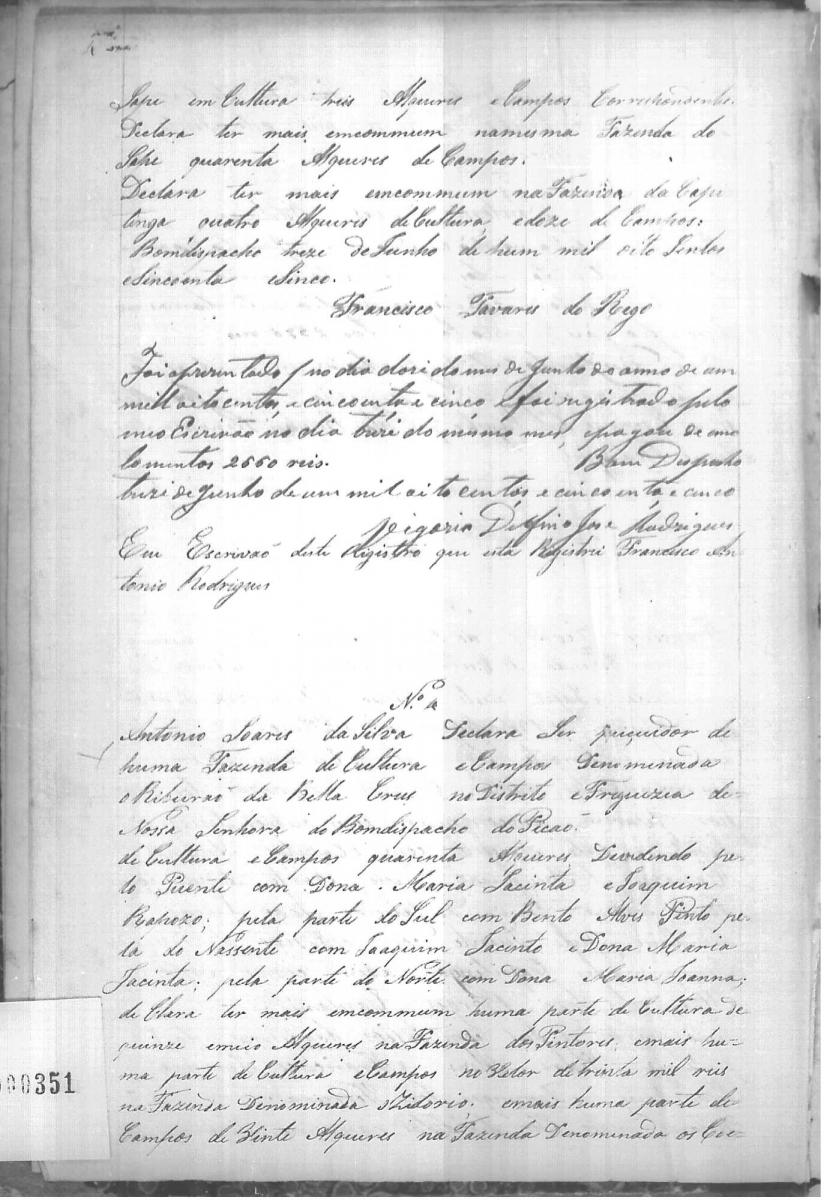 Sape em Cultura treis Alqueires e Campos Correspondente.
Declara ter mais emcommum namesma Fazenda do
Sape quarenta Alqueires de Campos.
Declara ter mais emcommum na Fazenda da Capi
tinga quatro Alqueires de Cultura, edoze de Campos:
Bomdispacho treze de Junho de hum mil oito Sentos
eSincoenta eSinco.
Francisco Tavares do Rego
Foi aprezentado no dia dozi do mes de Junho do anno de um
mill oitocentos, e cincoenta e cinco e foi registrado pelo
meo Escrivão no dia trezi do mesmo mes, epagou de emo
lomentos 2660 reis. Bom Dispacho
trezi de Junho de um mil oito centos, e cincoenta, e cinco
Vigario Delfino Jose Rodrigues
Eu Escrivaõ deste Registro que esta Registrei Francisco An
tonio Rodrigues
N.º
Antonio Soares da Silva Declara Ser puçuidor de
huma Fazenda de Cultura e Campos Denominada
o Ribeiraõ da Bella Crus no Distrito e Freguezia de
Nossa Senhora do Bomdispacho do Picaõ.
de Cultura e Campos quarenta Alqueires Devidindo pe-
lo Puente com Dona Maria Jacinta e Joaquim
Rapozo; pela parte do Sul com Bento Alves Pinto pe-
la do Nassente com Joaquim Jacinto e Dona Maria
Jacinta; pela parte do Norte com Dona Maria Joanna;
de Clara ter mais emcommum huma parte de Cultura de
quinze emeio Alqueires na Fazenda dos Pintores, emais hu-
ma parte de Cultura e Campos no Valor de trinta mil reis
na Fazenda Denominada emais huma parte de
Campos de Vinte Alqueires na Fazenda Denominada os
000351